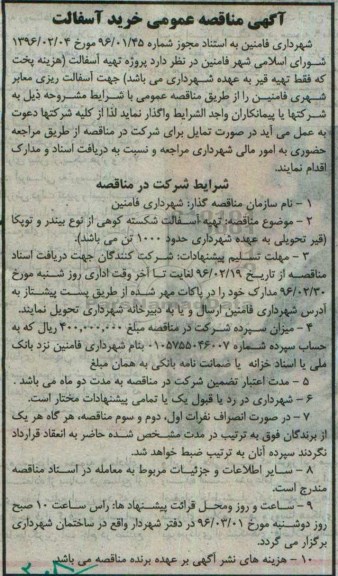 آگهی مناقصه عمومی خرید آسفالت
شهرداری فامنین به استناد مجوز شماره ۹۶/۰۱/۴۵ مورخ ۱۳۹۶/۰۲/۰۴
شورای اسلامی شهر فامنین در نظر دارد پروژه تهیه آسفالت (هزینه پخت
که فقط تهیه قیر به عهده شهرداری می باشد) جهت آسفالت ریزی معابر
شهری فامنین را از طریق مناقصه عمومی با شرایط مشروحه ذیل به
شرکتها یا پیمانکاران واجد الشرایط واگذار نماید لذا از کلیه شرکتها دعوت
به عمل می آید در صورت تمایل برای شرکت در مناقصه از طریق مراجعه
حضوری به امور مالی شهرداری مراجعه و نسبت به دریافت اسناد و مدارک
اقدام نمایند.
شرایط شرکت در مناقصه
۱ - نام سازمان مناقصه گذار: شهرداری فامنین
۲ - موضوع مناقصه: تهیه آسفالت شکسته کوهی از نوع بیندر و توپکا
(قیر تحویلی به عهده شهرداری حدود ۱۰۰۰ تن می باشد).
۳ - مهلت تسلیم پیشنهادات: شرکت کنندگان جهت دریافت اسناد
مناقصه از تاریخ ۹۶/۰۲/۱۹ لغایت تا آخر وقت اداری روز شنبه مورخ
۹۶/۰۲/۳۰ مدارک خود را در پاکات مهر شده از طریق پست پیشتاز به
آدرس شهرداری فامنین ارسال و یا به دبیرخانه شهرداری تحویل نمایند.
۴ - میزان سپرده شرکت در مناقصه مبلغ ۴۰۰,۰۰۰,۰۰۰ ریال که به
حساب سپرده شماره ۰۱۰۵۷۵۵۰۴۶۰۰۷ بنام شهرداری فامنین نزد بانک
ملی یا اسناد خزانه یا ضمانت نامه بانکی به همان مبلغ
۵ - مدت اعتبار تضمین شرکت در مناقصه به مدت دو ماه می باشد .
۶ - شهرداری در رد یا قبول یک یا تمامی پیشنهادات مختار است.
۷ - در صورت انصراف نفرات اول، دوم و سوم مناقصه، هر گاه هر یک
از برندگان فوق به ترتیب در مدت مشخص شده حاضر به انعقاد قرارداد
نگردند سپرده آنان به ترتیب ضبط خواهد شد.
۸ - سایر اطلاعات و جزئیات مربوط به معامله در اسناد مناقصه
مندرج است.
۹ - ساعت و روز ومحل قرائت پیشنهاد ها: راس ساعت ۱۰ صبح
روز دوشنبه مورخ ۹۶/۰۳/۰۱ در دفتر شهردار واقع در ساختمان شهرداری
برگزار می گردد.
۱۰ - هزینه های نشر آگهی بر عهده برنده مناقصه می باشد.